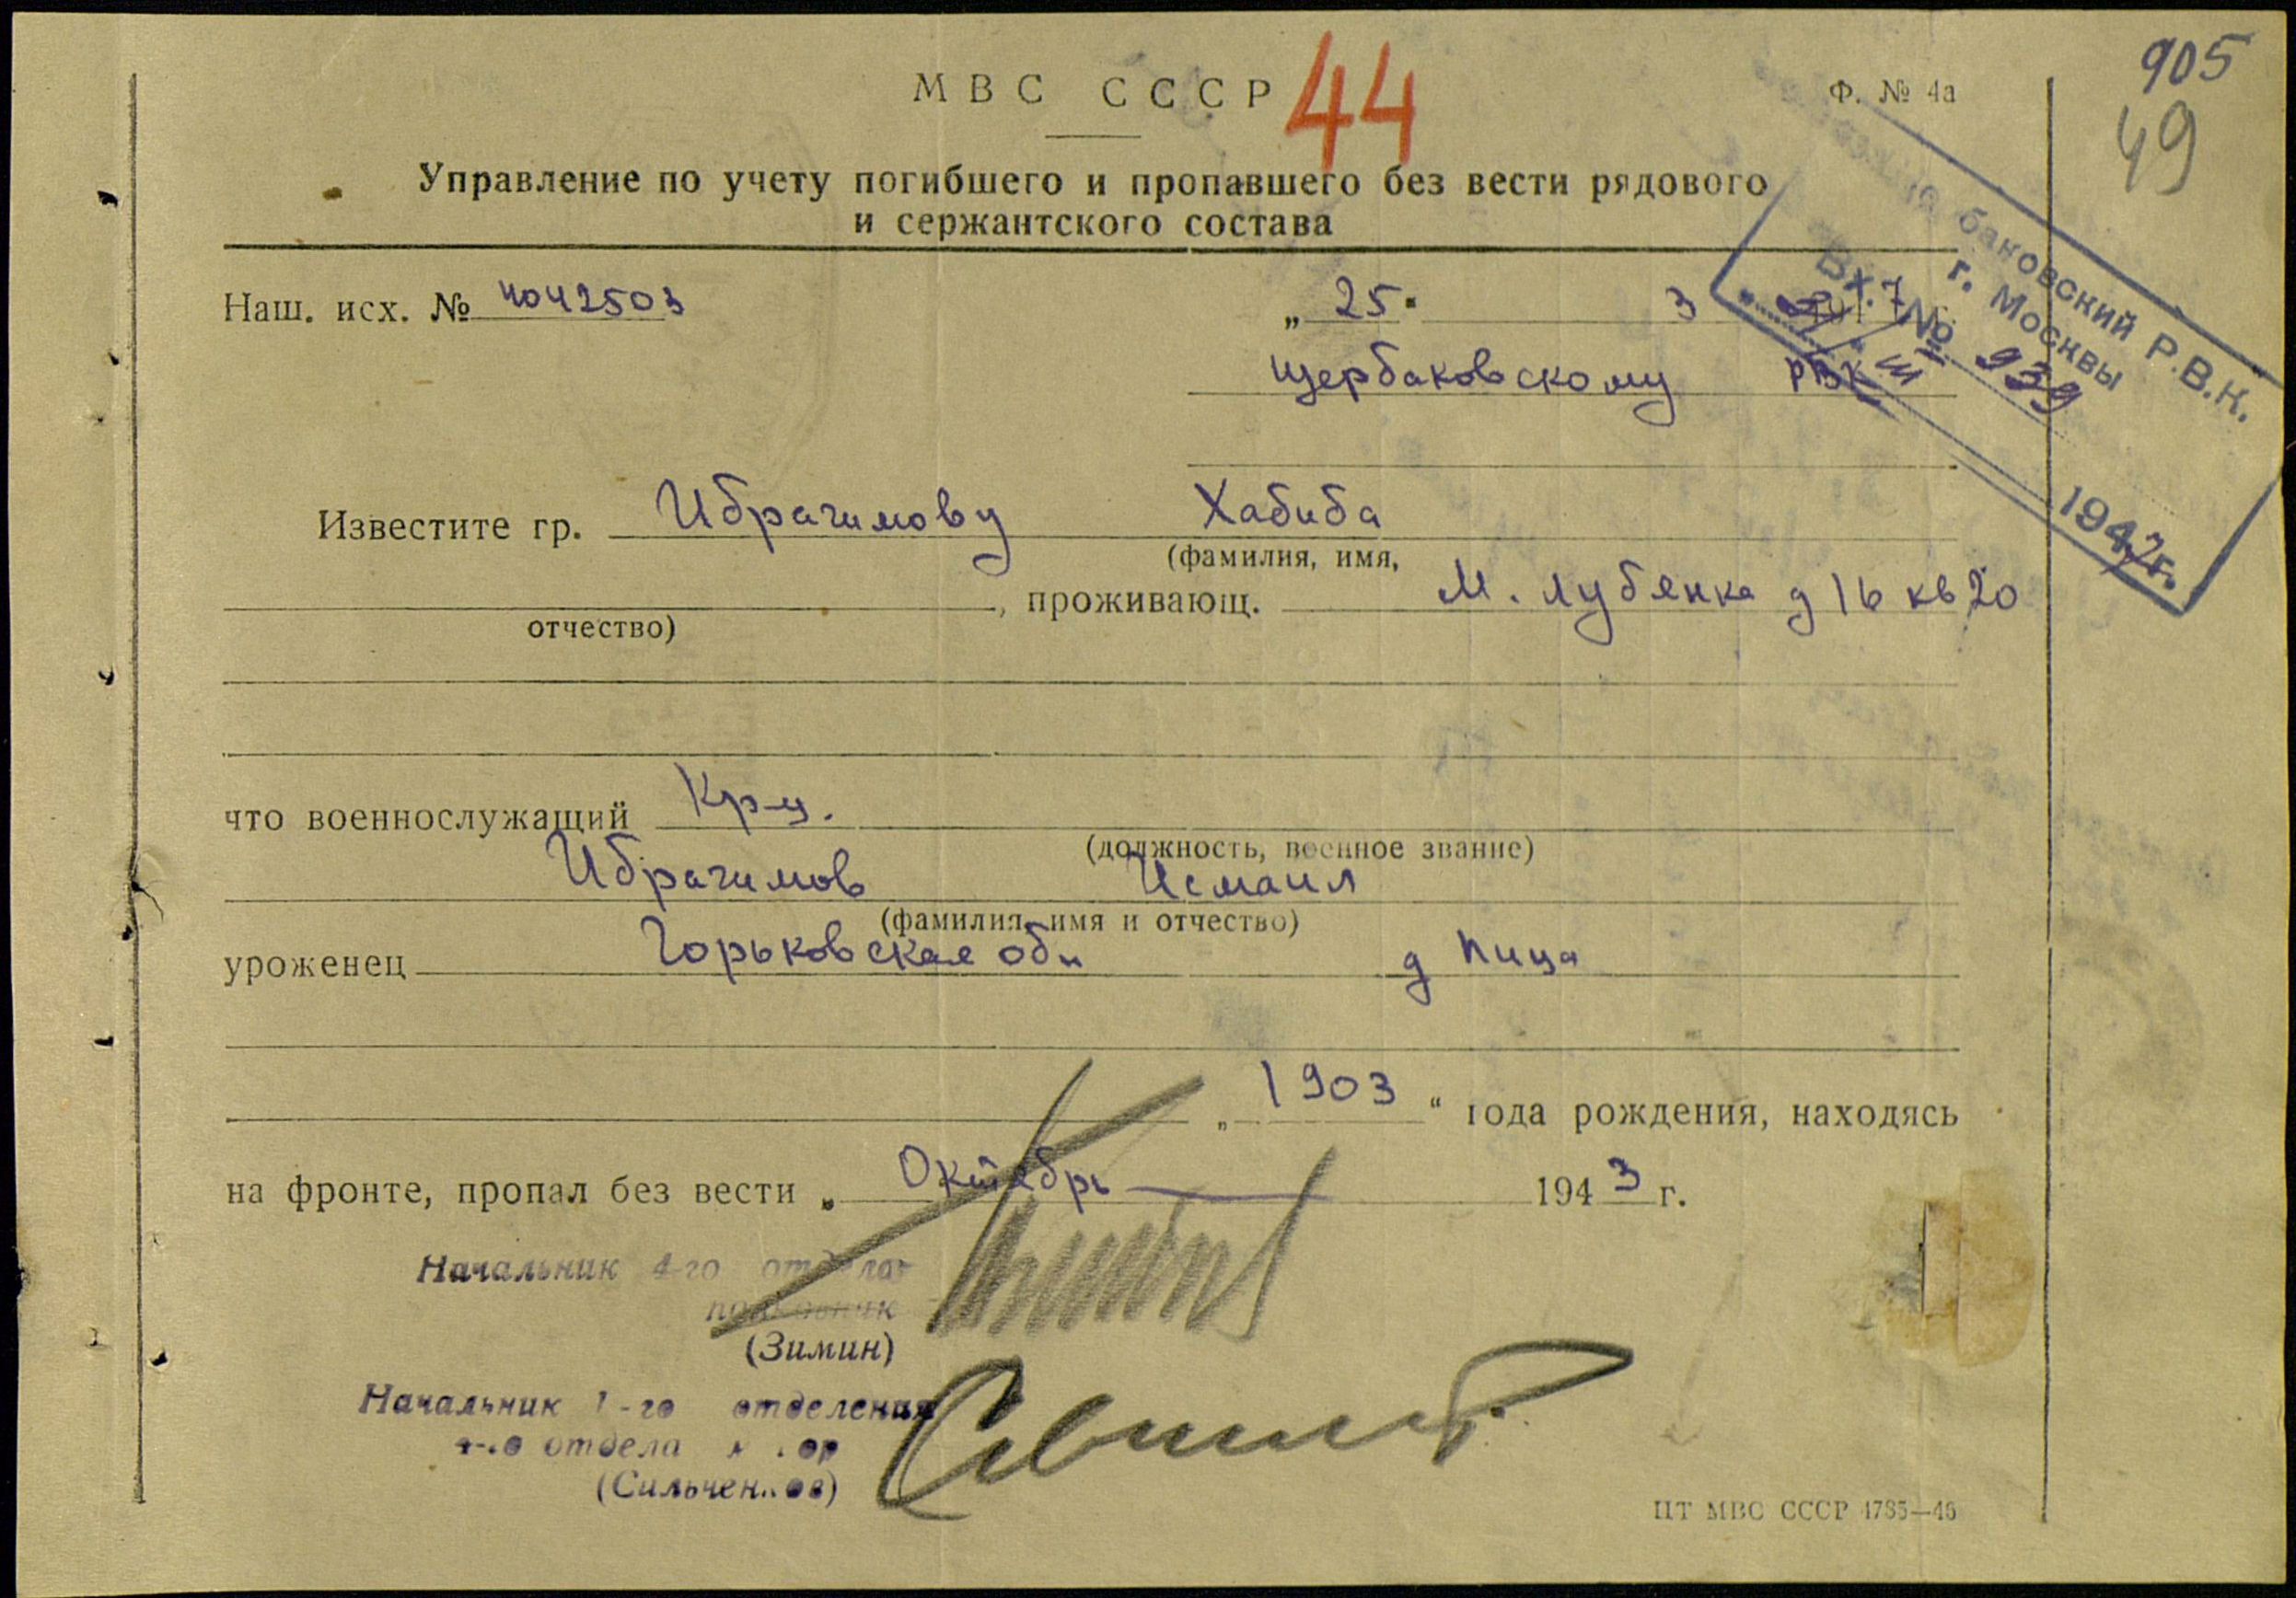 905
49
МВС СССР 44
Ф. № 4а
Управление по учету погибшего и пропавшего без вести рядового
и сержантского состава
Наш. исх. № 4042503
„ 25 " 3 1947
Щербаковскому РВК
баковский Р.В.К.
г. Москвы
Вх. № 939
1947 г.
Известите гр. Ибрагимову Хабиба
(фамилия, имя,
, проживающ. М. Лубянка д 16 кв 20
отчество)
что военнослужащий Кр-ц.
(должность, военное звание)
Ибрагимов Исмаил
(фамилия, имя и отчество)
уроженец Горьковская обл д Пица
„ 1903 “ года рождения, находясь
на фронте, пропал без вести „ Октябрь 1943 г.
Начальник 4-го отдела
полковник
(Зимин)
Начальник 1-го отделения
4-го отдела майор
(Сильченков)
ЦТ МВС СССР 1785—46